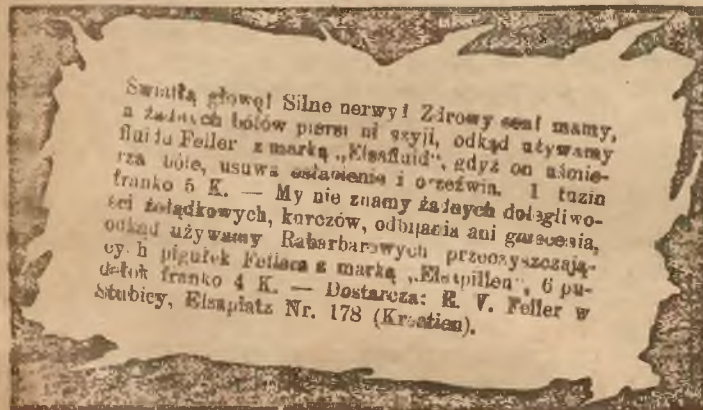 Światłą głowę! Silne nerwy! Zdrowy sen! mamy,
a żadnych bólów piersi ni szyji, odkąd używamy
fluidu Feller z marką „Elsafluid“, gdyż on uśmie-
rza bóle, usuwa osłabienie i orzeźwia. 1 tuzin
franko 5 K. — My nie znamy żadnych dolegliwo-
ści żołądkowych, kurczów, odbijania ani gniecenia,
odkąd używamy Rabarbarowych przeczyszczają-
cych pigułek Fellera z marką „Elsapillen“, 6 pu-
dełok franko 4 K. — Dostarcza: E. V. Feller w
Stubicy, Elsaplatz Nr. 178 (Kroatien).